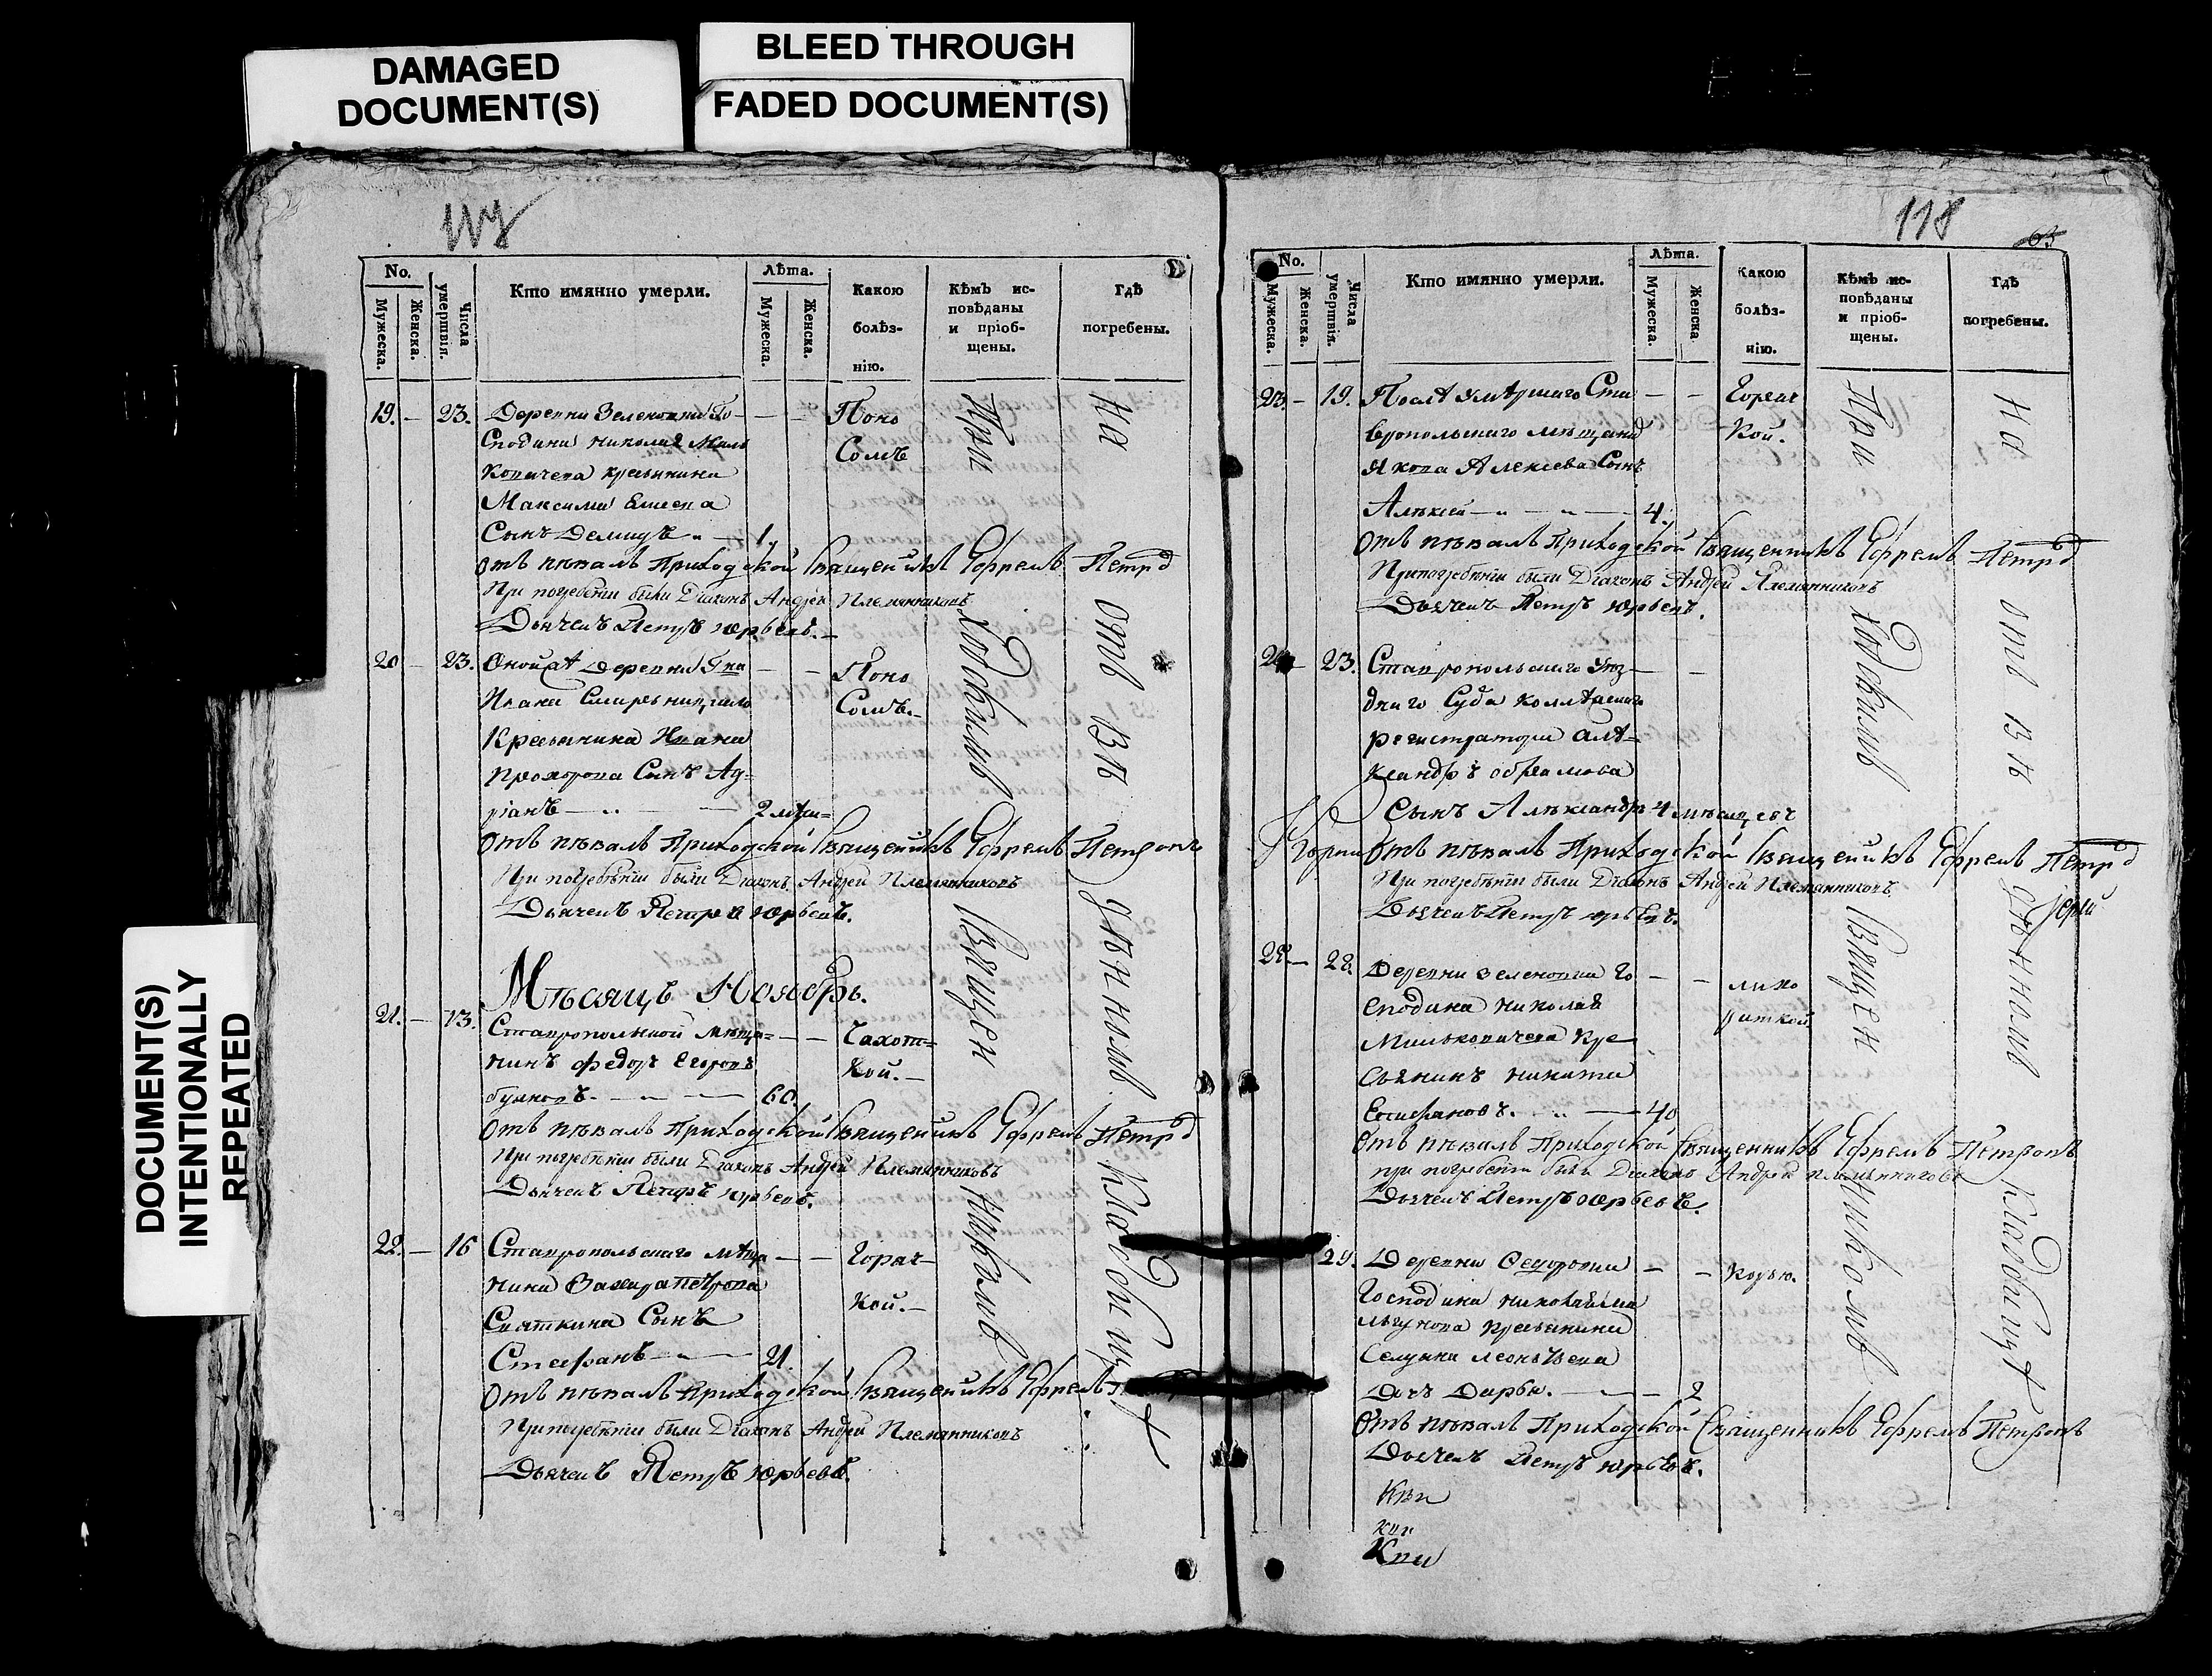 DAMAGED
DOCUMENT(S)
BLEED THROUGH
FADED DOCUMENT(S)
DOCUMENT(S)
INTENTIONALLY
REPEATED
117
No.
Мужеска.
Женска.
Числа умертвія.
Кто имянно умерли.
Лѣта.
Мужеска.
Женска.
Какою
болѣз-
нію.
Кѣмъ ис-
повѣданы
и пріоб-
щены.
Гдѣ
погребены.
19. — 23. Деревни Зеленовки Го- — — Поно
сподина Николая Миль
Сомъ
ковичева крестьянина
Максима Елисеева
Сынъ Демидъ 1.
Отъ пѣвалъ Приходской Священникъ Ефремъ Петро
При погребеніи были Діаконъ Андрей Племянниковъ
Дьячекъ Петръ Юрьевъ.
20 — 23. Оной же Деревни — — Поно
Ивана
Сомъ.
Крестьянина Ивана
Прохорова Сынъ Ад-
ріанъ — 2
Отъ пѣвалъ Приходской Священникъ Ефремъ Петровъ
При погребѣніи были Діаконъ Андрей Племянниковъ
Дьячекъ Петръ Юрьевъ.
Мѣсяцъ Ноябрь.
21. — 13. Ставропольской мѣща= — — Чахот=
нинъ Федоръ Егоровъ
Кой. —
60.
Отъ пѣвалъ Приходской Священникъ Ефремъ Петро
При погребѣніи были Діаконъ Андрей Племянниковъ
Дьячекъ Петръ Юрьевъ.
22. — 16 Ставропольскаго мѣща — — Горяч
нина Петрова
Кой. —
Сынъ
Стефанъ — 21.
Отъ пѣвалъ Приходской Священникъ Ефремъ
При погребѣніи были Діаконъ Андрей Племянниковъ
Дьячекъ Петръ Юрьевъ.
При
ходскимъ
Священ
никомъ
На
отъ вѣ
дѣнномъ
кладбищѣ
118
63
No.
Мужеска.
Женска.
Числа умертвія.
Кто имянно умерли.
Лѣта.
Мужеска.
Женска.
Какою
болѣз-
нію.
Кѣмъ ис-
повѣданы
и пріоб-
щены.
Гдѣ
погребены.
23. — 19. Послѣ умершаго Ста — — Горяч
вропольскаго мѣщанина
Кой.
Якова Алексеева Сынъ
Алексей — 4.
Отъ пѣвалъ Приходской Священникъ Ефремъ Петро
При погребѣніи были Діаконъ Андрей Племянниковъ
Дьячекъ Петръ Юрьевъ.
24 — 23. Ставропольскаго Уѣз- —
днаго Суда
регистратора Але=
ксандръ Обрамова
Сынъ Александръ 4 мѣсяцевъ
Отъ пѣвалъ Приходской Священникъ Ефремъ Петро
При погребѣніи были Діаконъ Андрей Племянниковъ
Дьячекъ Петръ Юрьевъ.
25 — 28. Деревни Зеленовки Го — — лихо
сподина Николая
радкой
Мильковичева Кре
стьянинъ Никита
Епифановъ. — 40
Отъ пѣвалъ Приходской Священникъ Ефремъ Петровъ
При погребеніи были Діаконъ Андрей Племянниковъ
Дьячекъ Петръ Юрьевъ.
29. Деревни Федоровки — — Корью.
Господина Николая
Мельгунова крестьянина
Леонтьева
Дочь Дарья. — 2
Отъ пѣвалъ Приходской Священникъ Ефремъ Петровъ
Дьячекъ Петръ Юрьевъ.
При
ходскимъ
Священ
никомъ
На
отъ вѣ
дѣнномъ
кладбищѣ